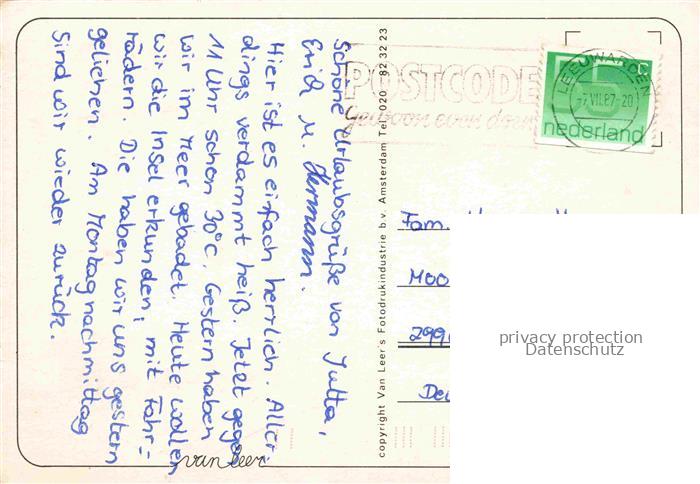 Schöne Urlaubsgrüße von Jutta,
Erik u. Hermann.
Hier ist es einfach herrlich. Aller-
dings verdammt heiß. Jetzt gegen
11 Uhr schon 30°C. Gestern haben
wir im Meer gebadet. Heute wollen
wir die Insel erkunden, mit Fahr-
rädern. Die haben wir uns gestern
geliehen. Am Montagnachmittag
sind wir wieder zurück.
van leer
copyright Van Leer's Fotodrukindustrie b.v. Amsterdam Tel. 020 - 82 32 23
POSTCODE
gewoon even doen
LEEUWARDEN
VII.87-20
nederland
Fam.
Moo
299
De
privacy protection
Datenschutz